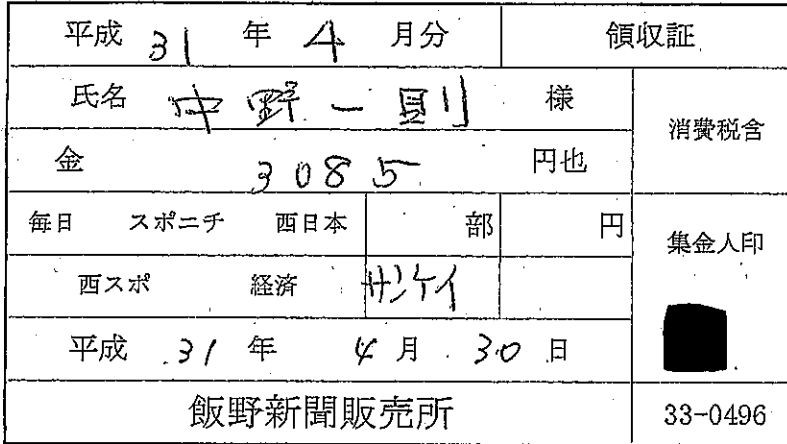 平成 31 年 4 月分 領収証
氏名 中野一則 様
消費税含
金 3085 円也
毎日 スポニチ 西日本 部 円
集金人印
西スポ 経済 サンケイ
平成 31 年 4 月 30 日
飯野新聞販売所 33-0496